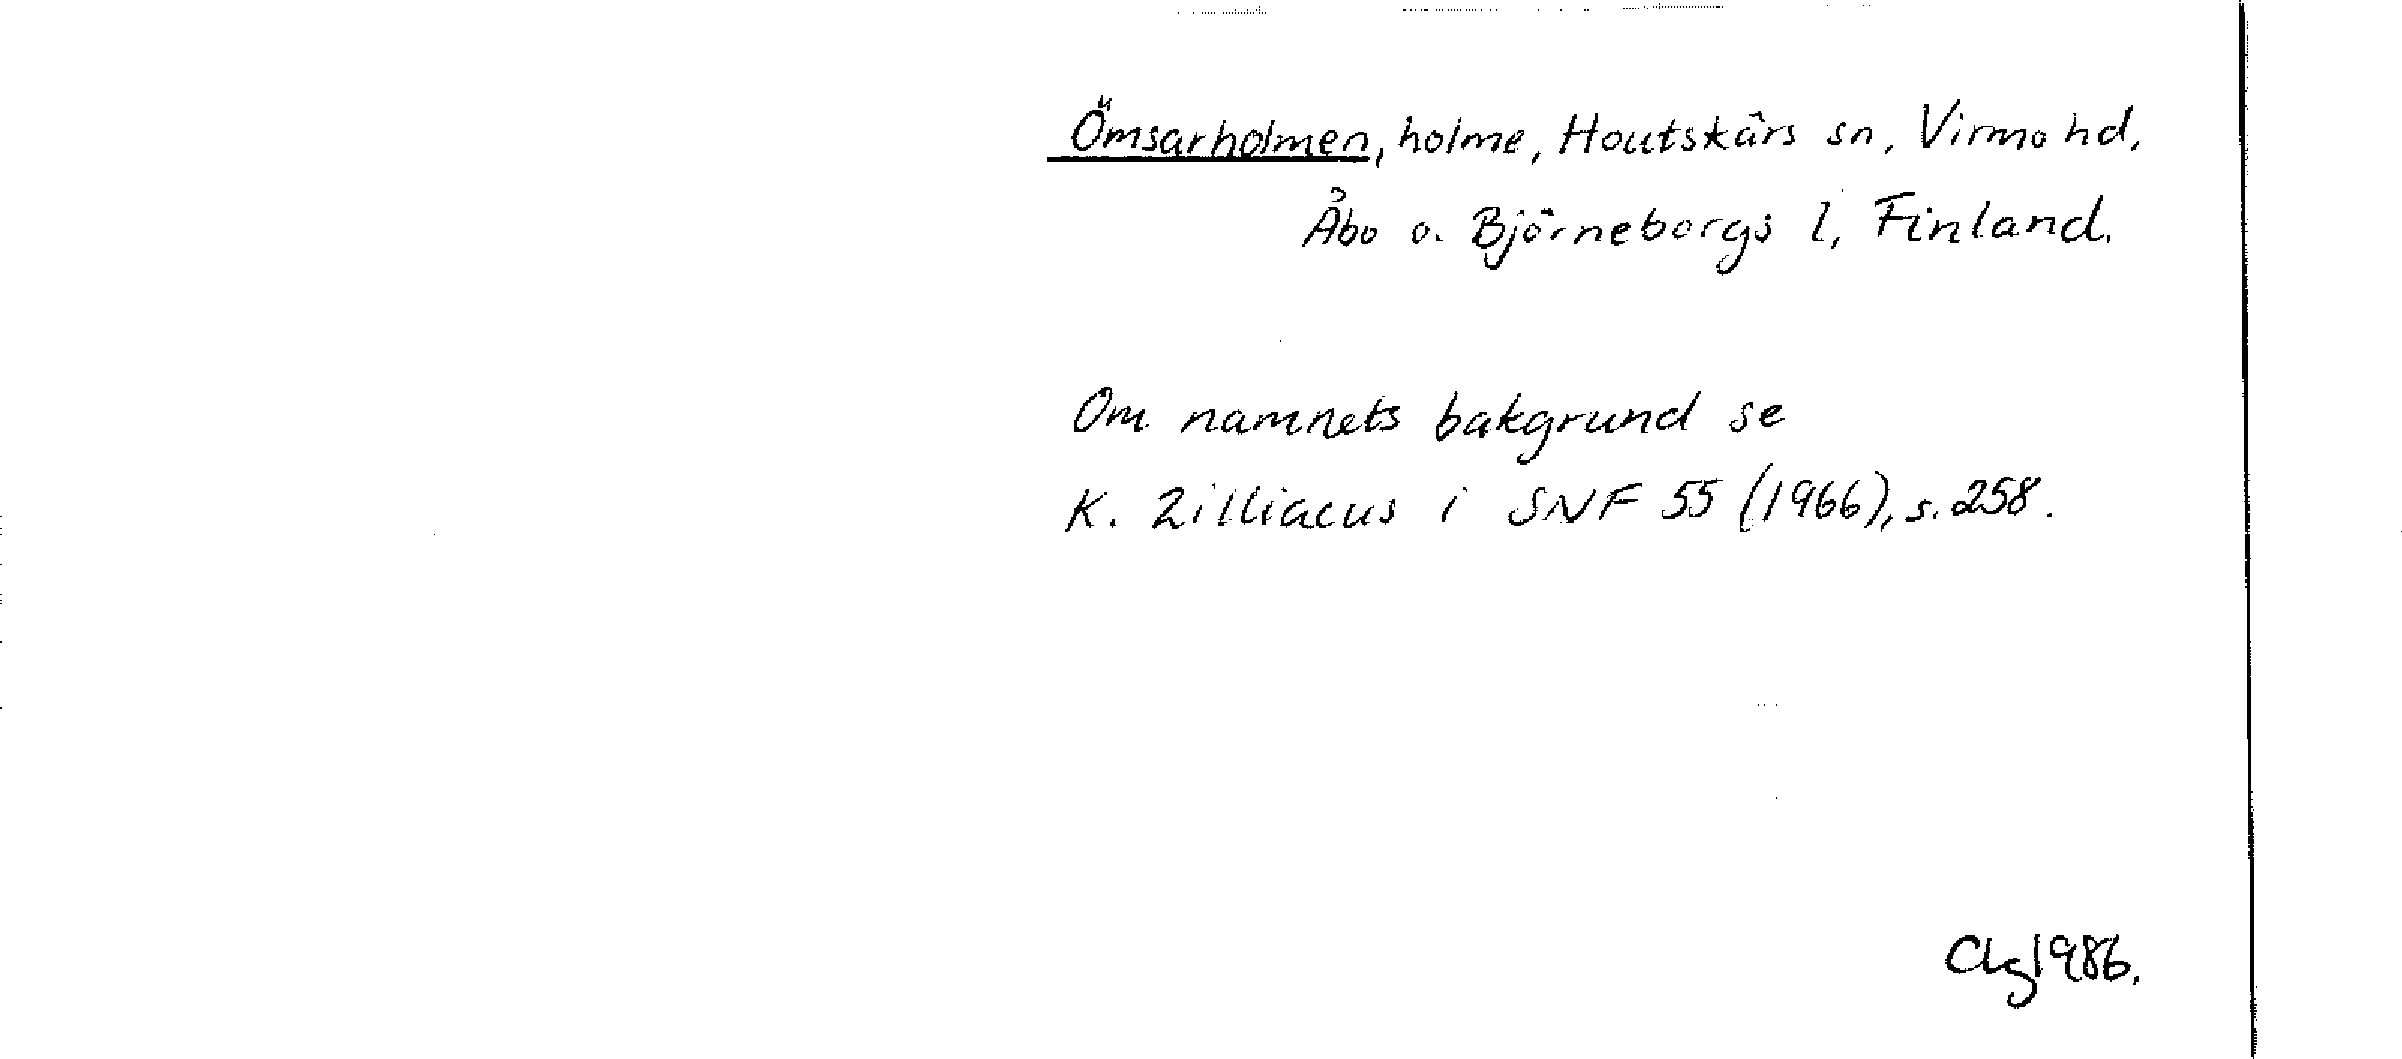 Ömsarholmen, holme, Houtskärs sn, Virmo hd,
Åbo o. Björneborgs l, Finland.
Om namnets bakgrund se
K. Zilliacus i SNF 55 (1966), s. 258.
1986.